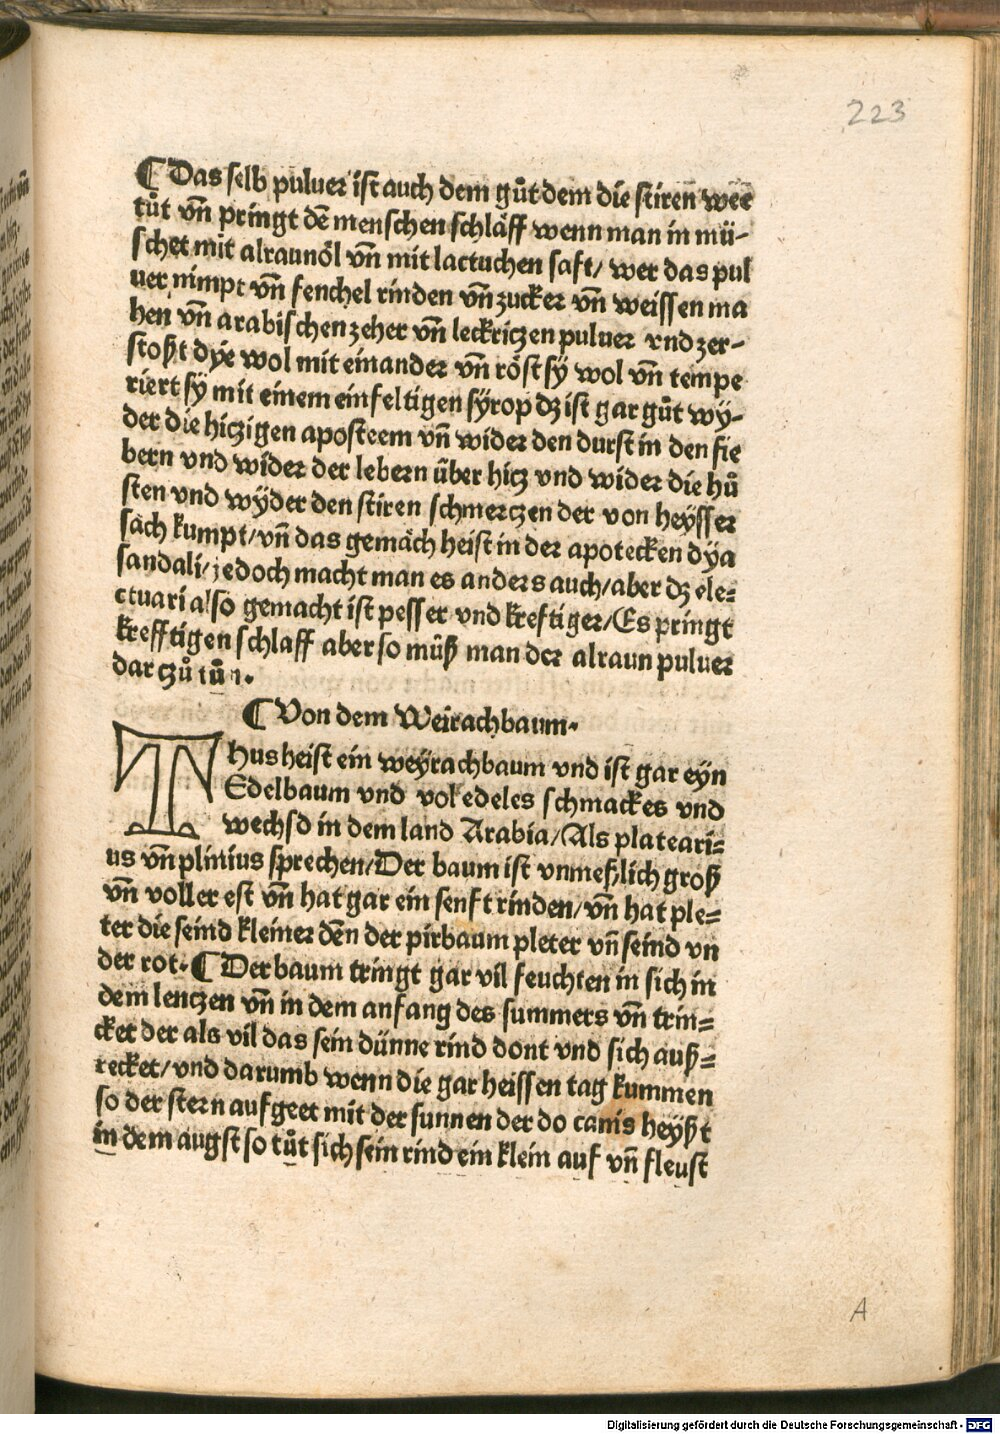 223
⸿ Das selb puluer ist auch dem gůt dem die stiren wee
tůt vñ pringt dē menschen schläff wenn man in mü-
schet mit alraunöl vñ mit lactuchen saft/ wer das pul
uer nimpt vñ fenchel rinden vñ zucker vñ weissen ma
hen vñ arabischen zeher vñ leckriczen puluer vnd zer-
stoßt dye wol mit einander vñ röst sÿ wol vñ tempe
riert sÿ mit einem einfeltigen sÿrop dz ist gar gůt wÿ-
der die hiczigen aposteem vñ wider den durst in den fie
bern vnd wider der lebern über hicz vnd wider die hů
sten vnd wÿder den stiren schmerczen der von heÿsser
sach kumpt/ vñ das gemäch heist in der apotecken dÿa
sandali/ jedoch macht man es anders auch/ aber dz ele-
ctuari also gemacht ist pesser vnd kreftiger/ Es pringt
krefftigen schlaff aber so müß man der alraun puluer
dar czů tůn.
⸿ Von dem Weirachbaum.
Thus heist ein weÿrachbaum vnd ist gar eÿn
Edelbaum vnd vol edeles schmackes vnd
wechsd in dem land Arabia/ Als plateari-
us vñ plinius sprechen/ Der baum ist vnmeßlich groß
vñ voller est vñ hat gar ein senft rinden/ vñ hat ple-
ter die seind kleiner dēn der pirbaum pleter vñ seind vn
der rot. ⸿ Der baum tringt gar vil feuchten in sich in
dem lenczen vñ in dem anfang des summers vñ trin-
cket der als vil das sein dünne rind dont vnd sich auß-
recket/ vnd darumb wenn die gar heissen tag kummen
so der stern aufgeet mit der sunnen der do canis heÿßt
in dem augst so tůt sich sein rind ein klein auf vñ fleust
A
Digitalisierung gefördert durch die Deutsche Forschungsgemeinschaft - DFG